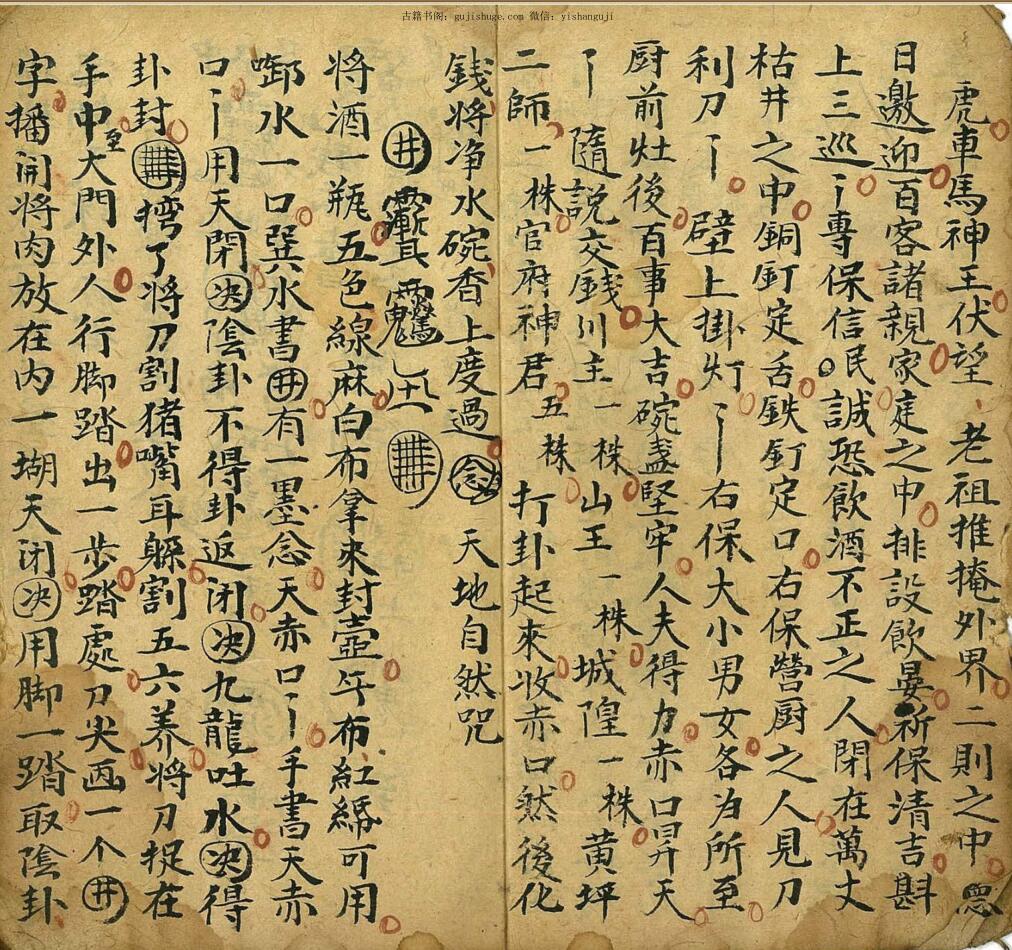 古籍书阁：gujishuge.com 微信：yishanguji
虎車馬神王伏望老祖推掩外界二則之中
日邀迎百客諸親家庭之中排設飲宴祈保清吉斟
上三巡专保信民誠恐飲酒不正之人閉在萬丈
枯井之中銅釘定舌鉄釘定口右保營厨之人見刀
利刀壁上掛灯右保大小男女各为所至
厨前灶後百事大吉碗盞堅牢人夫得力赤口昇天
隨說交錢川主一株山王一株城隍一株黄坪
二師一株官府神君五株打卦起來收赤口然後化
錢將净水碗香上度過念天地自然咒
井
将酒一瓶五色線麻白布拿來封壺午布紅綿可用
啣水一口巽水書井有一墨念天赤口手書天赤
口用天閉决陰卦不得卦返闭决九龍吐水决得
卦封将刀割猪嘴耳躲割五六养將刀捉在
手中至大門外人行脚踏出一步踏處刀尖画一个井
字播開将肉放在内一塘天闭决用脚一踏取陰卦